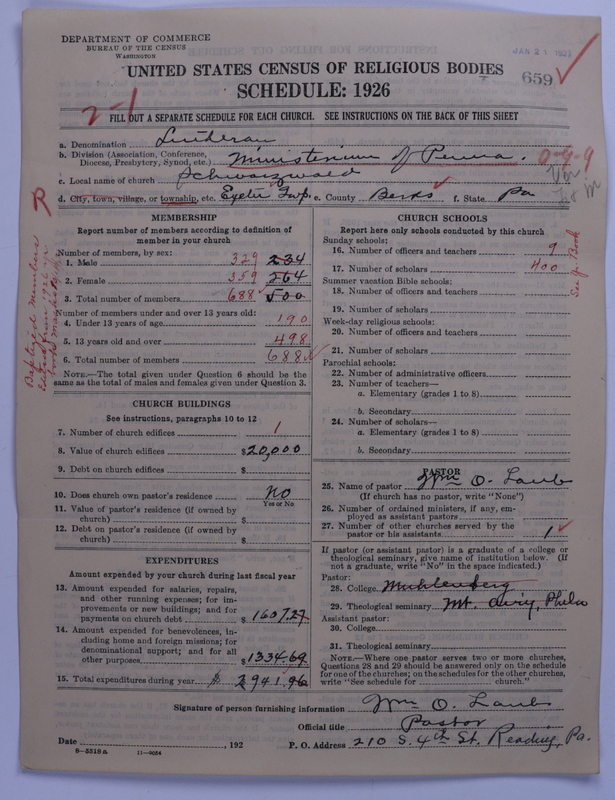 DEPARTMENT OF COMMERCE
BUREAU OF THE CENSUS
WASHINGTON
JAN 21 1927
UNITED STATES CENSUS OF RELIGIOUS BODIES
SCHEDULE: 1926
659
2-1
FILL OUT A SEPARATE SCHEDULE FOR EACH CHURCH. SEE INSTRUCTIONS ON THE BACK OF THIS SHEET
a. Denomination Lutheran
b. Division (Association, Conference, Diocese, Presbytery, Synod, etc.) Ministerium of Penna. 0-9-9
c. Local name of church Schwarzwald
d. City, town, village, or township, etc. Exeter Twp. e. County Berks f. State Pa
R
MEMBERSHIP
Report number of members according to definition of
member in your church
Number of members, by sex:
1. Male 329 234
2. Female 359 264
3. Total number of members 688 500
Number of members under and over 13 years old:
4. Under 13 years of age 190
5. 13 years old and over 498
6. Total number of members 688
NOTE.—The total given under Question 6 should be the
same as the total of males and females given under Question 3.
Baptized Members
CHURCH BUILDINGS
See instructions, paragraphs 10 to 12
7. Number of church edifices 1
8. Value of church edifices $20,000
9. Debt on church edifices $
10. Does church own pastor's residence No
Yes or No
11. Value of pastor's residence (if owned by
church) $
12. Debt on pastor's residence (if owned by
church) $
EXPENDITURES
Amount expended by your church during last fiscal year
13. Amount expended for salaries, repairs,
and other running expenses; for im-
provements or new buildings; and for
payments on church debt $1607.27
14. Amount expended for benevolences, in-
cluding home and foreign missions; for
denominational support; and for all
other purposes $1334.69
15. Total expenditures during year $ 2941.96
CHURCH SCHOOLS
Report here only schools conducted by this church
Sunday schools:
16. Number of officers and teachers 9
17. Number of scholars 400
See Y. Book
Summer vacation Bible schools:
18. Number of officers and teachers
19. Number of scholars
Week-day religious schools:
20. Number of officers and teachers
21. Number of scholars
Parochial schools:
22. Number of administrative officers
23. Number of teachers—
a. Elementary (grades 1 to 8)
b. Secondary
24. Number of scholars—
a. Elementary (grades 1 to 8)
b. Secondary
PASTOR
25. Name of pastor Wm O. Laub
(If church has no pastor, write "None")
26. Number of ordained ministers, if any, em-
ployed as assistant pastors
27. Number of other churches served by the
pastor or his assistants 1
If pastor (or assistant pastor) is a graduate of a college or
theological seminary, give name of institution below. (If
not a graduate, write "No" in the space indicated.)
Pastor:
28. College Muhlenberg
29. Theological seminary Mt. Airy, Phila
Assistant pastor:
30. College
31. Theological seminary
NOTE.—Where one pastor serves two or more churches,
Questions 28 and 29 should be answered only on the schedule
for one of the churches; on the schedules for the other churches,
write "See schedule for church."
Signature of person furnishing information Wm O. Laub
Official title Pastor
Date , 192
P. O. Address 210 S. 4th St. Reading, Pa.
8—5518a 11—9034